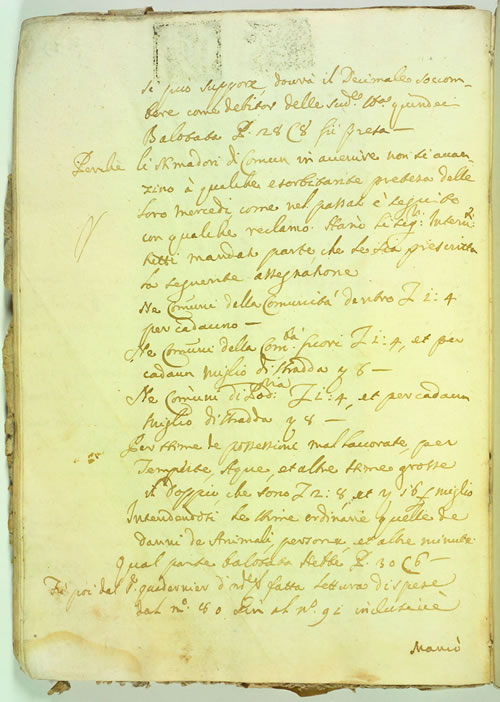 si può suppore, dovrà il Decimale socom-
bere come debitor delle sud.e
Balotata P. 28 C 8 fù presa —
Perchè li stimadori di Comun in avenire non si avan-
zino à qualche esorbitante pretesa delle
loro mercedi come nel passato è seguito
con qualche reclamo. Stanò li Sig.i
mandat parte, che le sia prescritta
la seguente assegnatione
Ne Comuni della Comunità dentro £ 1: 4
per cadauno —
Ne Comuni della Com.tà fuori £ 1: 4, et per
cadaun miglio di stradda 8 —
Ne Comuni di £ 1: 4, et per cadaun
miglio di stradda 8 —
Per stime de possessioni mal lavorate, per
Tempeste, Aque, et altre stime grosse
il doppio che sono £ 2: 8, et 16 miglio
Intendendosi le stime ordinarie quelle de
danni de Animali, persone, et altre minute
Qual parte balotata hebbe P. 30 C 6 —
Fù poi dal quadernier fatta lettura di spese
dal n.o 80 sin al n.o 91 inclusivè